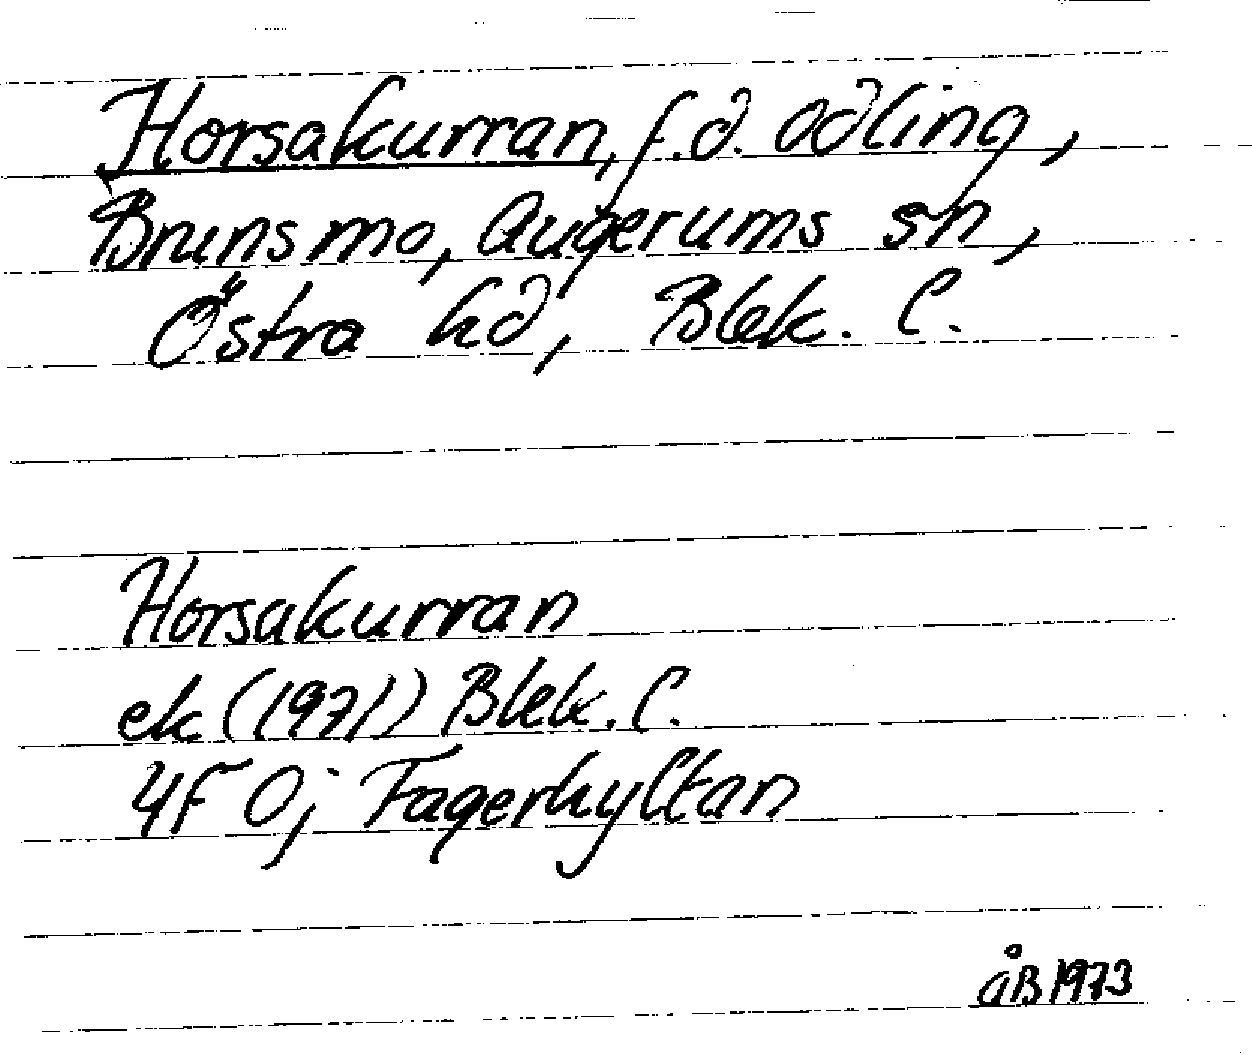 Horsakurran, f.d. odling,
Brunsmo, Augerums sn,
Östra hd, Blek. l.
Horsakurran
ek (1971) Blek. l.
4F 0j Fagerhyltan
åB 1973